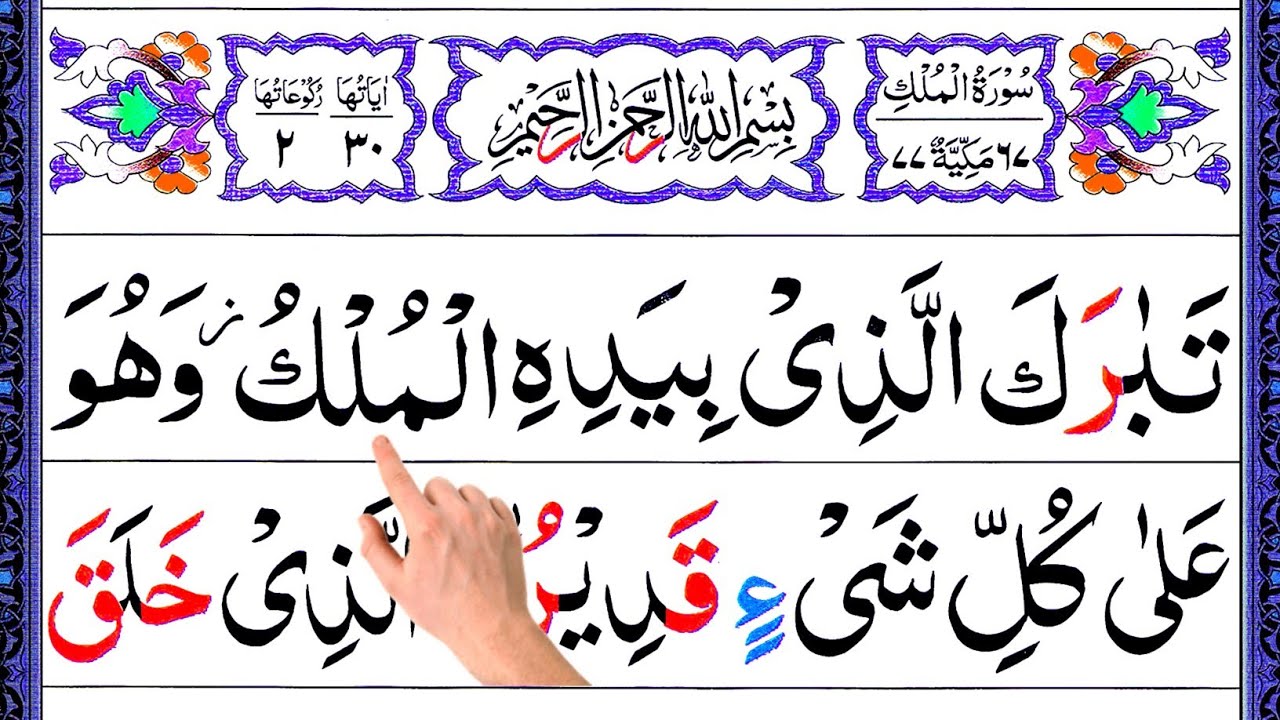 سُوْرَةُ الْمُلْكِ
٦٧ مَكِّيَّةٌ ٧٧
بِسْمِ اللهِ الرَّحْمٰنِ الرَّحِيْمِ
اٰيَاتُهَا ٣٠
رُكُوْعَاتُهَا ٢
تَبٰرَكَ الَّذِیْ بِيَدِهِ الْمُلْكُ ز وَهُوَ
عَلٰى كُلِّ شَیْءٍ قَدِيْرُ الَّذِیْ خَلَقَ